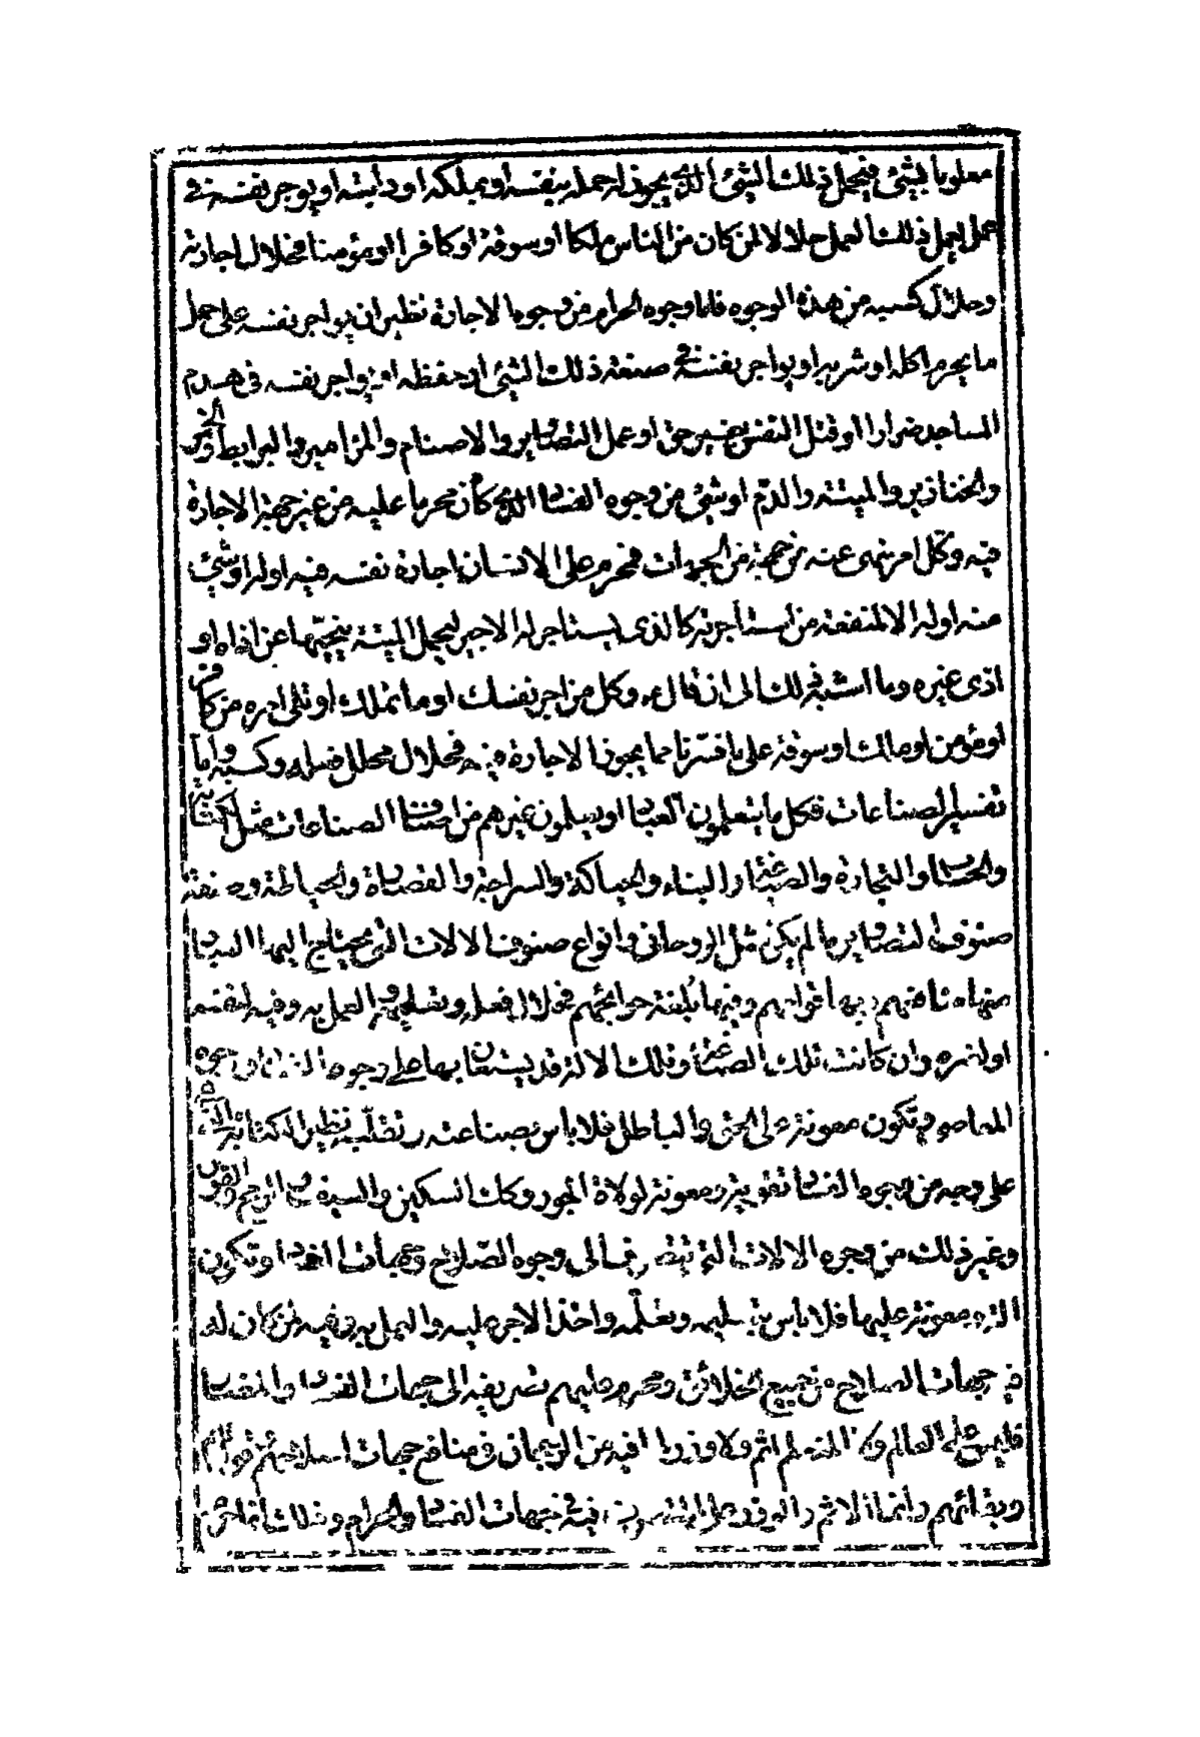 معلوما بشيئ فيحمل ذلك الشيئ الذى يجوز له حمله بنفسه او بملكه او دابته او يوجر نفسه فى
عمل يعمل ذلك العمل حلالا لمن كان من الناس ملكا او سوقة او كافرا او مؤمنا فحلال اجارته
وحلال كسبه من هذه الوجوه فاما وجوه الحرام من وجوه الاجارة نظير ان يواجر نفسه على حمل
ما يحرم اكله او شربه او يواجر نفسه فى صنعة ذلك الشيئ او حفظه او يواجر نفسه فى هدم
المساجد ضرارا او قتل النفس بغير حق او عمل التصاوير والاصنام والمزامير والبرابط والخمر
والخنازير والميتة والدم او شيئ من وجوه الفساد الذى كان محرما عليه من غير جهة الاجارة
فيه وكل امر ينهى عنه من جهة من الجهات فمحرم على الانسان اجارة نفسه فيه اوله او شيئ
منه اوله الا لمنفعة من استأجرته كالذى يستاجر له الاجير ليحمل الميتة ينجيها عن اذاه او
اذى غيره وما اشبه ذلك الى ان قال ع وكل من اجر نفسه او ما يملك او يلى امره من كافر
او مؤمن او ملك او سوقة على ما فسرنا مما يجوز الاجارة فيه فحلال محلل فعله وكسبه واما
تفسير الصناعات فكل ما يتعلمون العباد او يعلمون غيرهم من اصناف الصناعات مثل الكتابة
والحساب والتجارة والصياغة والبناء والحياكة والسراجة والقصارة والخياطة وصنعة
صنوف التصاوير ما لم يكن مثل الروحانى وانواع صنوف الالات التى يحتاج اليها العباد
منها منافعهم وبها قوامهم وفيها بلغة حوائجهم فحلال فعله وتعليمه والعمل به وفيه لنفسه
او لغيره وان كانت تلك الصناعة وتلك الالة قد يستعان بها على وجوه الفساد ووجوه
المعاصى وتكون معونة على الحق والباطل فلا باس بصناعته وتقلبه نظير الكتابة التى
على وجه من وجوه الفساد تقوية ومعونة لولاة الجور وكك السكين والسيف والرمح والقوس
وغير ذلك من وجوه الالات التى تصرف الى وجوه الصلاح وجهات الفساد وتكون
الة ومعونة عليها فلا باس بتعليمه وتعلمه واخذ الاجر عليه والعمل به وفيه لمن كان له
فيه جهات الصلاح من جميع الخلائق ومحرم عليهم تصريفه الى جهات الفساد والمضار
فليس على العالم ولا المتعلم اثم ولا وزر لما فيه من الرجحان فى منافع جهات صلاحهم وقوامهم
وبقائهم وانما الاثم والوزر على المتصرف فيه فى جهات الفساد والحرام وذلك انما حرم